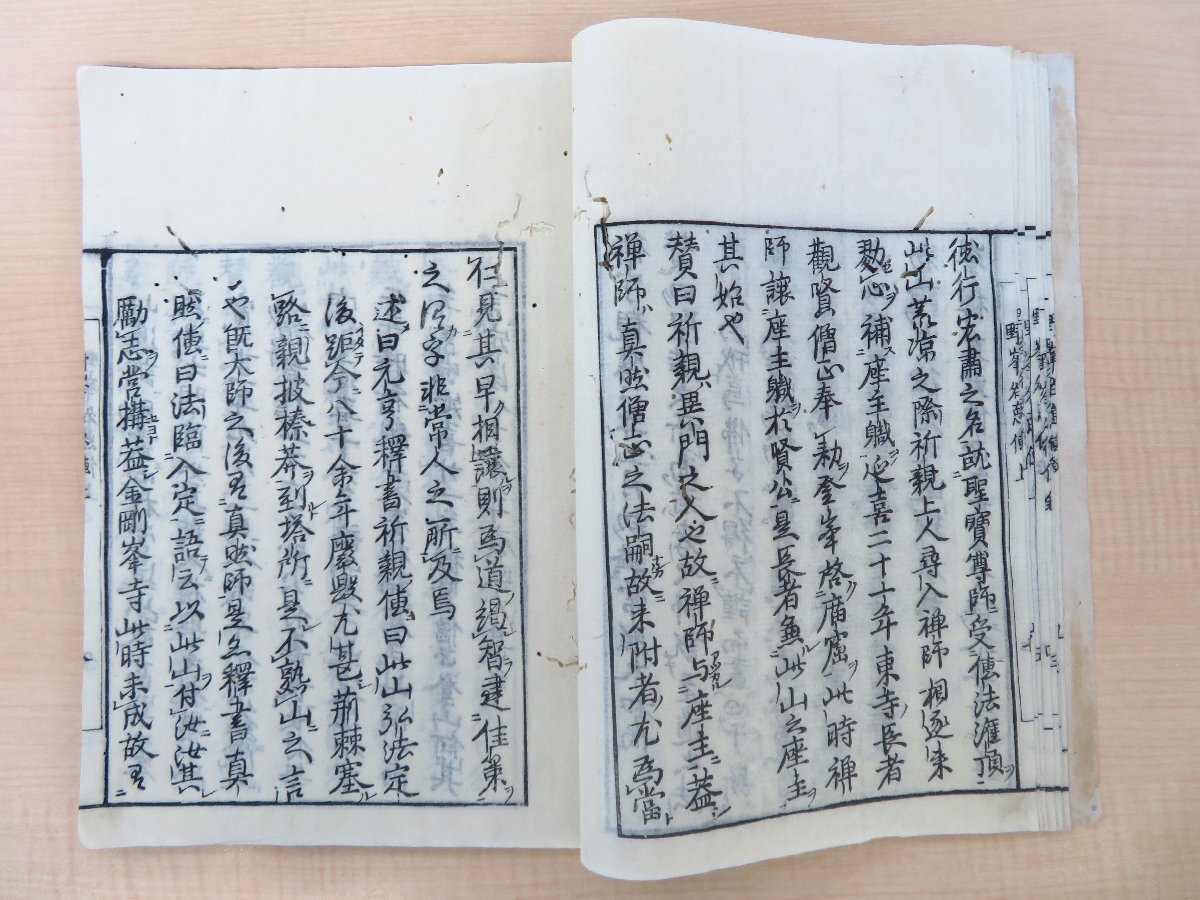 徳行宏肅之名就聖寶尊師受傳法灌頂
此山荒凉之際祈親上人尋入禅師相逐来
勤心補座主職延喜二十一年東寺長者
觀賢僧正奉勅登峯啓廟窟此時禅
師讓座主職於賢公是長者兼此山之座主
其始也
賛曰祈親異門之人也故禅師与座主蓋
禅師真然僧正之法嗣故来附者尤為當
仁見其早相讓則為道竭智建佳策
之仁字非常人之所及焉
述曰元亨釋書祈親傳曰此山弘法定
後距今八十余年廢毀尤甚荊棘塞
路親披榛莽到塔所是不熟山之言
也既大師之後有真然師是亦釋書真
然傳曰法臨入定語云以此山付汝汝其
勵志営構蓋金剛峯寺此時未成故有
野峯名徳傳上